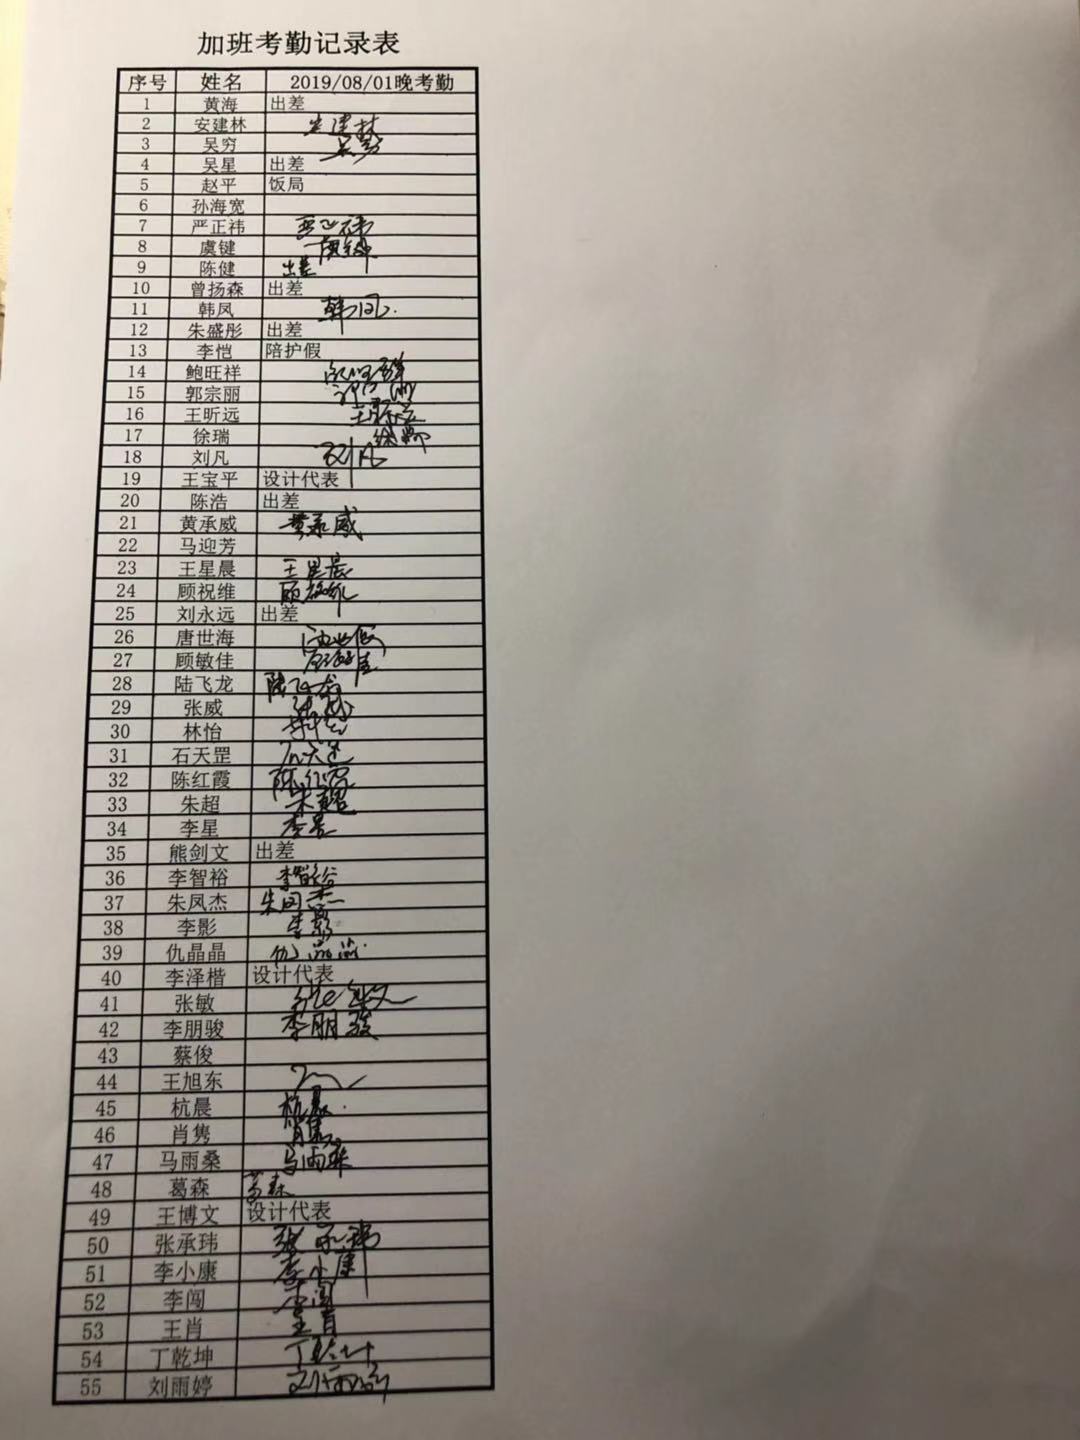 加班考勤记录表
序号 姓名 2019/08/01晚考勤
1 黄海 出差
2 安建林 安建林
3 吴穷 吴穷
4 吴星 出差
5 赵平 饭局
6 孙海宽
7 严正祎 严正祎
8 虞键 虞键
9 陈健 出差
10 曾扬森 出差
11 韩凤 韩凤
12 朱盛彤 出差
13 李恺 陪护假
14 鲍旺祥
15 郭宗丽
16 王昕远
17 徐瑞
18 刘凡 刘凡
19 王宝平 设计代表
20 陈浩 出差
21 黄承威 黄承威
22 马迎芳
23 王星晨 王星晨
24 顾祝维 顾祝维
25 刘永远 出差
26 唐世海
27 顾敏佳
28 陆飞龙 陆飞龙
29 张威 张威
30 林怡 林怡
31 石天罡
32 陈红霞 陈红霞
33 朱超 朱超
34 李星 李星
35 熊剑文 出差
36 李智裕 李智裕
37 朱凤杰 朱凤杰
38 李影 李影
39 仇晶晶 仇晶晶
40 李泽楷 设计代表
41 张敏 张敏
42 李朋骏 李朋骏
43 蔡俊
44 王旭东
45 杭晨 杭晨
46 肖隽 肖隽
47 马雨桑 马雨桑
48 葛森 葛森
49 王博文 设计代表
50 张承玮 张承玮
51 李小康 李小康
52 李闯 李闯
53 王肖 王肖
54 丁乾坤 丁乾坤
55 刘雨婷 刘雨婷